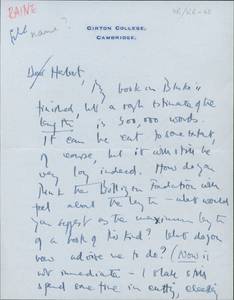 RAINE
GIRTON COLLEGE,
CAMBRIDGE.
name?
Dear Herbert,
My book on Blake is
finished, but a rough estimate of the
length is 300,000 words.
It can be cut to some extent,
of course, but it will still be
very long indeed. How do you
think the Bollingen Foundation will
feel about the length - what would
you suggest as the maximum length
of a book of this kind? What do you
now advise me to do? (Now is
not immediate - I shall still
spend some time in cutting, checking